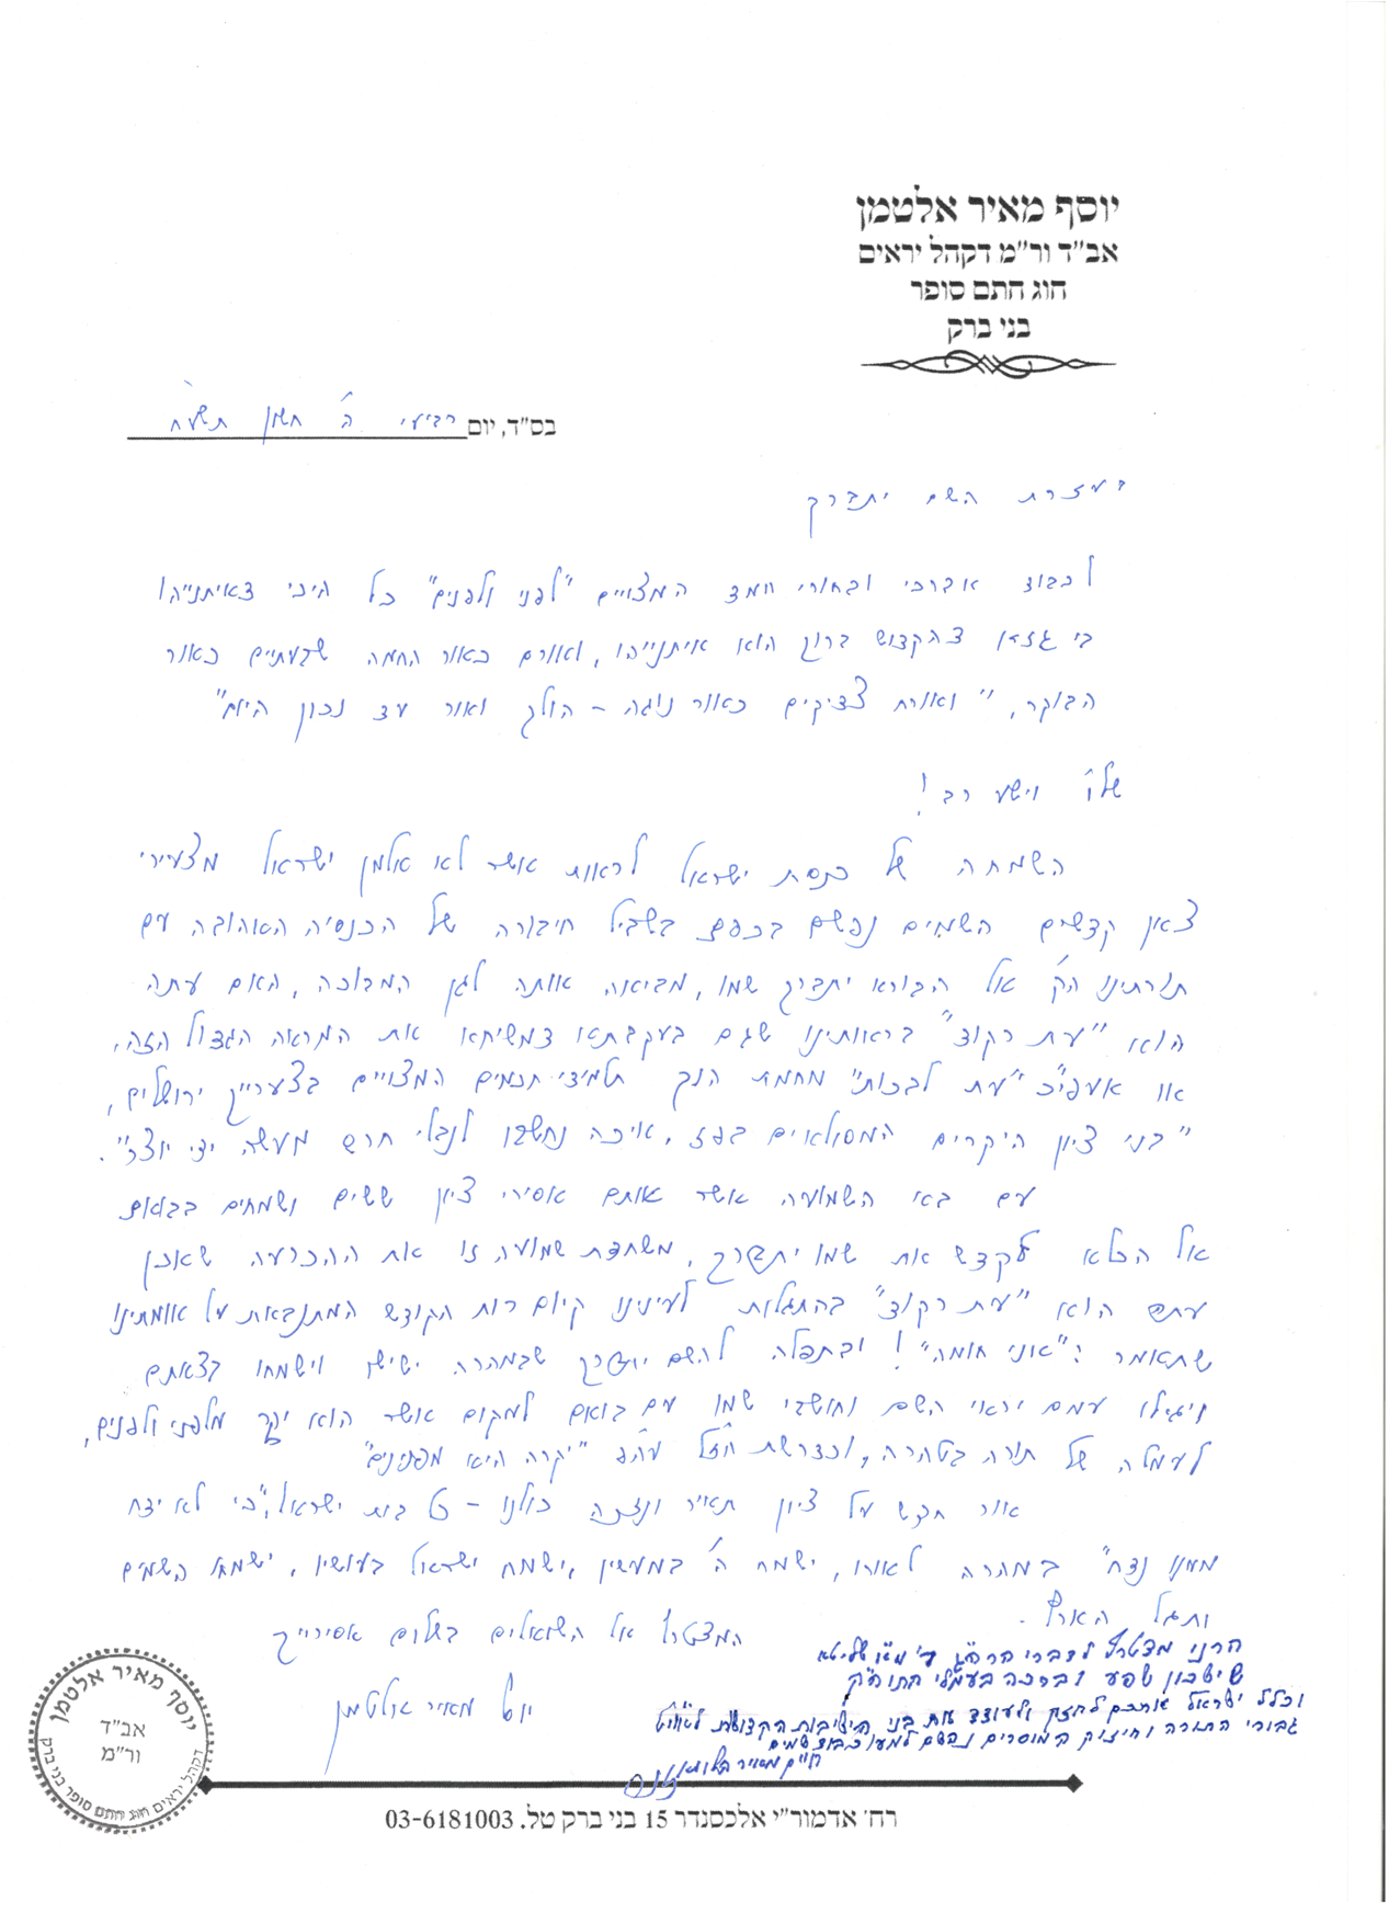 יוסף מאיר אלטמן
אב"ד ור"מ דקהל יראים
חוג חתם סופר
בני ברק
בס"ד, יום רביעי ה' חשון תשע"ח
בעזרת השם יתברך
לכבוד אברכי ובחורי חמד המצויים "לפני ולפנים" כל היכי דאיתנייהו
כי גזזא דהקדוש ברוך הוא איתנייהו, ואורם כאור החמה שבעתיים כאור
הבוקר, "ואורח צדיקים כאור נוגה - הולך ואור עד נכון היום"
שלו' וישע רב!
השמחה של כנסת ישראל לראות אשר לא אלמן ישראל מצעירי
צאן קדשים השמים נפשם בכפם בשביל חיבורה של הכנסיה האהובה עם
תורתינו הק' אל הבורא יתברך שמו, מביאה אותה לגן המבוכה, האם עתה
הוא "עת רקוד" בראותינו שגם בעקבתא דמשיחא את המראה הגדול הזה,
או אעפ"כ "עת לבכות" מחמת הנך תלמידי חכמים המצויים בצערייך ירושלים,
"בני ציון היקרים המסולאים בפז, איכה נחשבו לנבלי חרש מעשה ידי יוצר".
עם באי השמועה אשר אותם אסירי ציון ששים ושמחים בבואם
אל הכלא לקדש את שמו יתברך, משחדת שמועה זו את ההכרעה שאכן
עתה הוא "עת רקוד" בהתגלות לעינינו קיום רוח הקודש המתנבאת על אומתינו
שתאמר: "אני חומה"! ובתפלה להשם יתברך שבמהרה ישישו וישמחו בצאתם
ויגילו עמם יראי השם וחושבי שמו עם בואם למקום אשר הוא יקר מלפני ולפנים,
לעמלה של תורה בטהרה, וכדרשת חז"ל עה"פ "יקרה היא מפנינים"
אור חדש על ציון תאיר ונזכה כולנו - כל בית ישראל, "כי לא ידח
ממנו נדח" במהרה לאורו, ישמח ה' במעשיו, ישמח ישראל בעושיו, ישמחו השמים
ותגל הארץ.
המצטרף אל השואלים בשלום אסירייך
יוסף מאיר אלטמן
הרני מצטרף לדברי הרה"ג שליטא
שישכון שפע וברכה בעמלי התוה"ק
וכלל ישראל לחזק ולעודד את בני הישיבות הקדושות
גבורי התורה וחיזוק המוסרים נפשם למען כבוד שמים
חיים מאיר
יוסף מאיר אלטמן
אב"ד
ור"מ
דקהל יראים חוג חתם סופר בני ברק
רח' אדמור"י אלכסנדר 15 בני ברק טל. 03-6181003